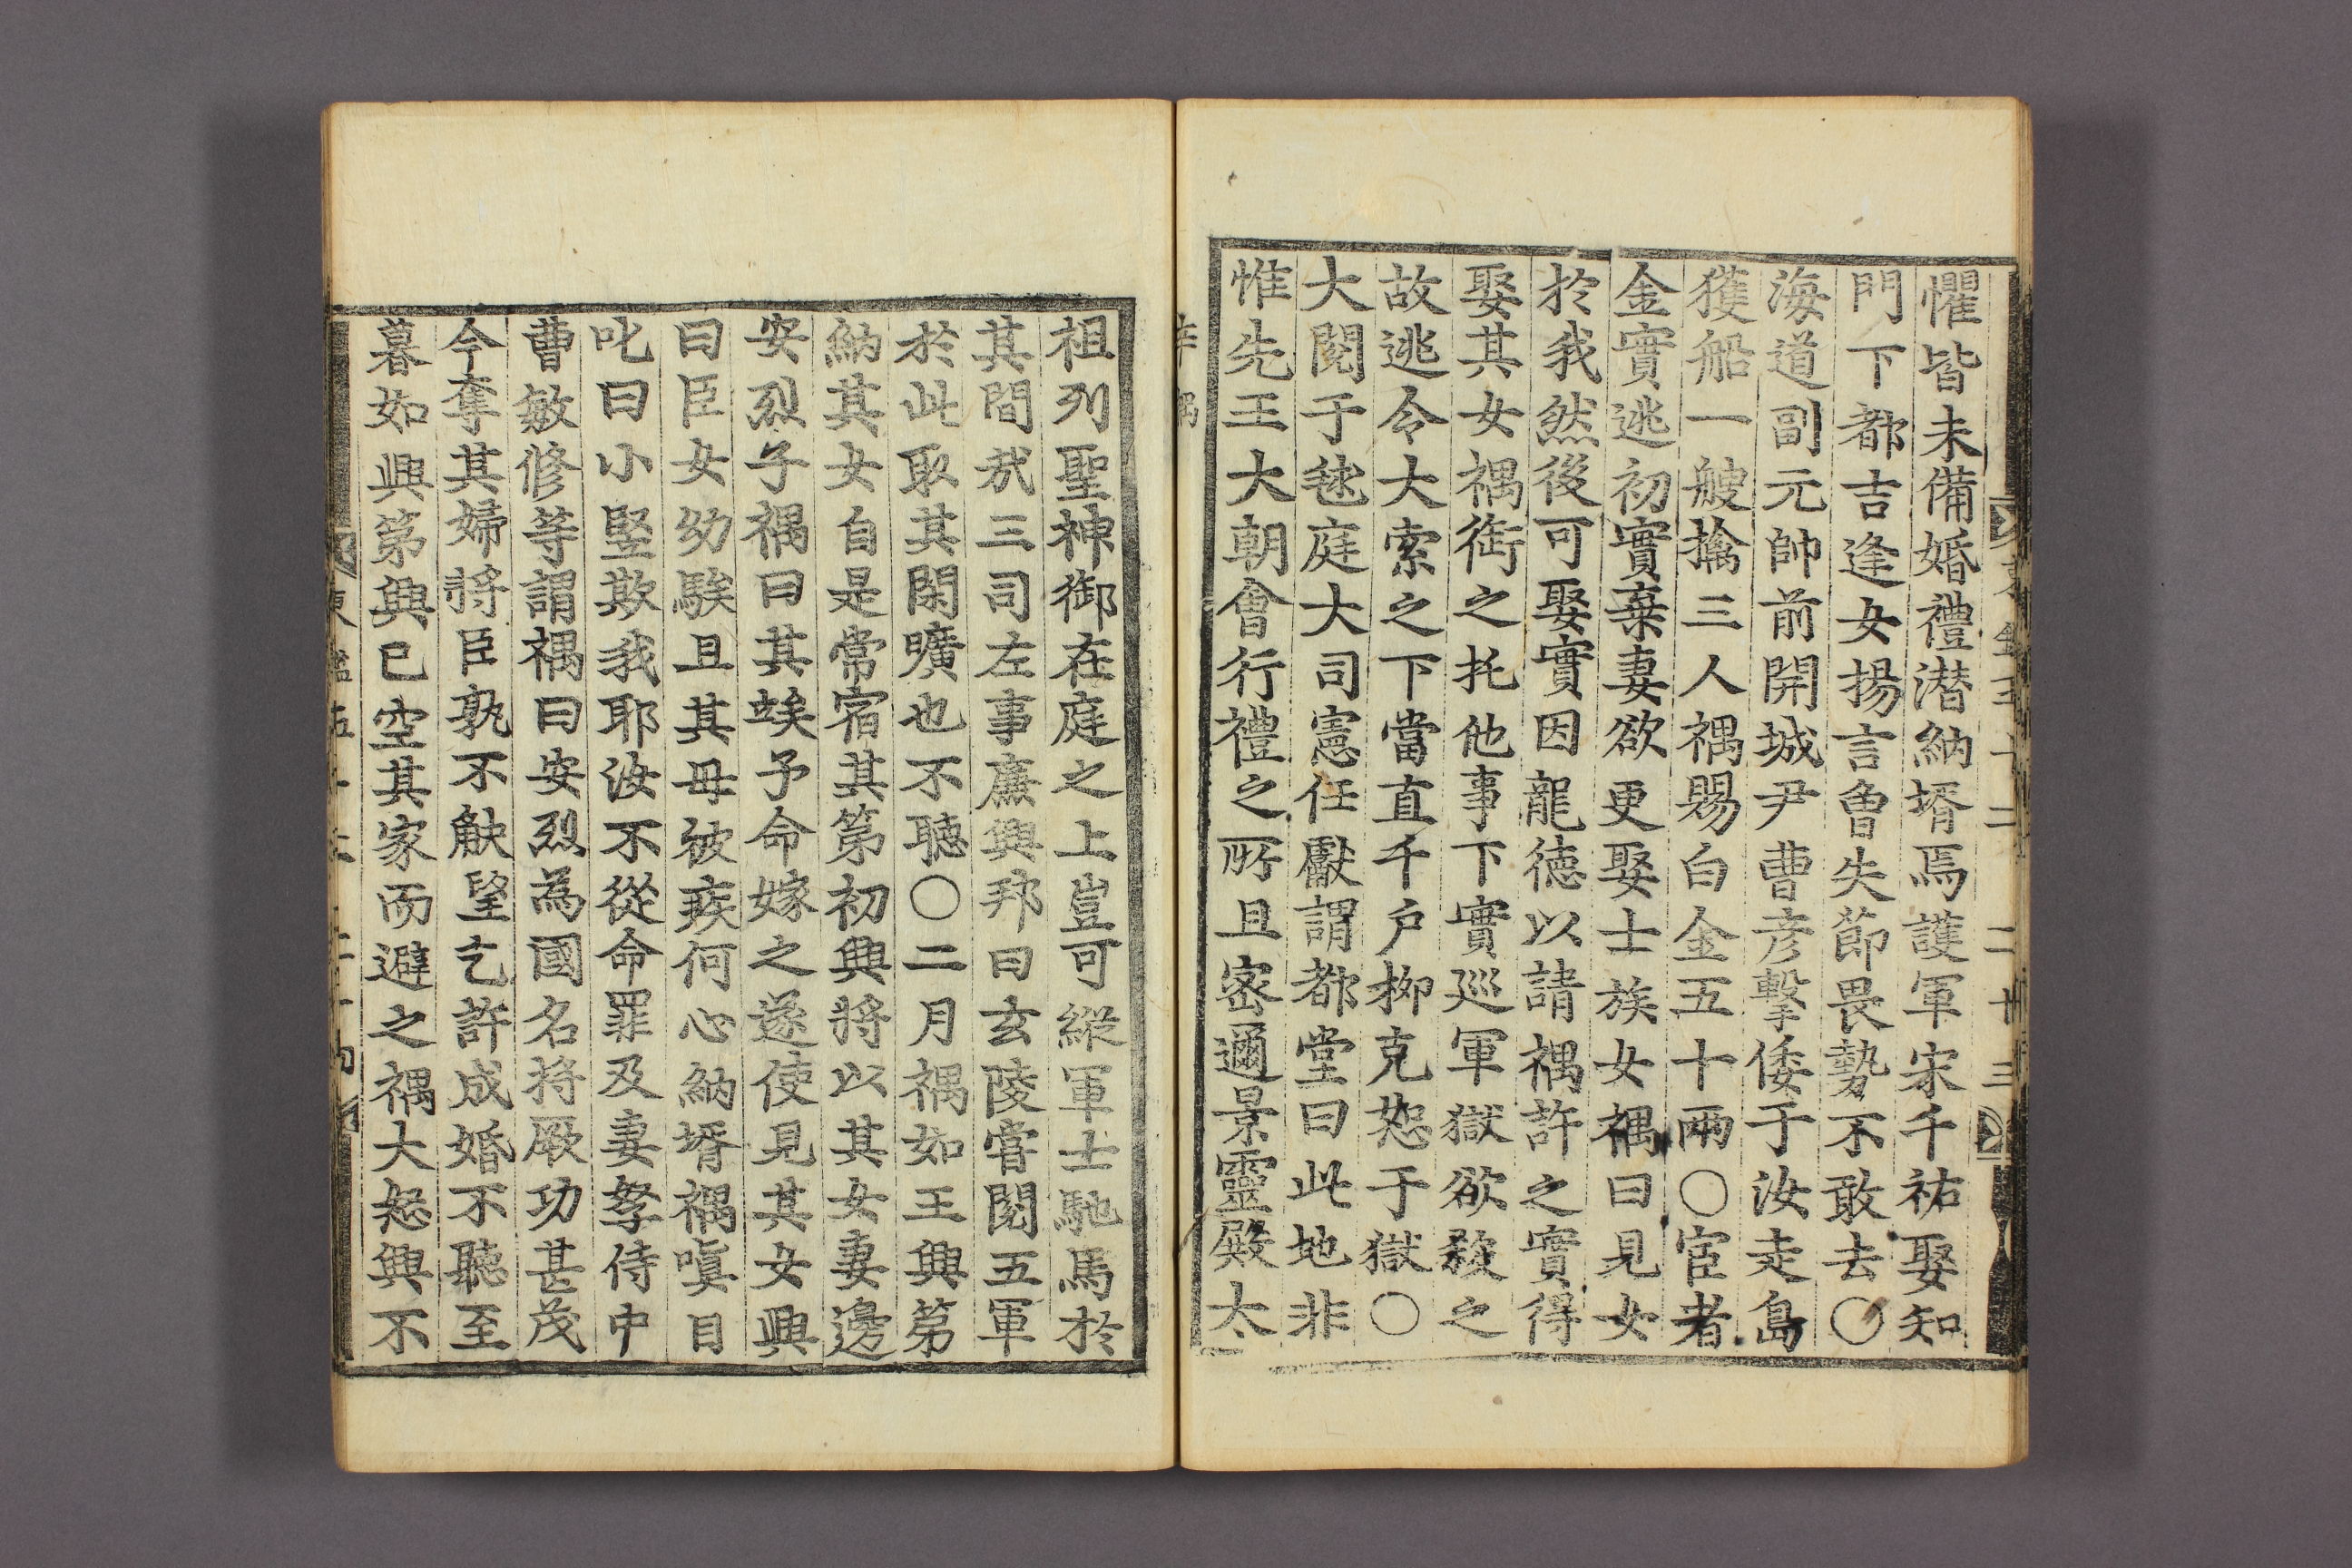 懼皆未備婚禮潜納壻焉護軍宋千祐娶知
門下都吉逢女揚言曾失節畏勢不敢去〇
海道副元帥前開城尹曹彦擊倭于汝走島
獲船一艘擒三人禑賜白金五十兩〇宦者
金實逃初實棄妻欲更娶士族女禑曰見女
於我然後可娶實因龍德以請禑許之實得
娶其女禑銜之托他事下實巡軍獄欲殺之
故逃令大索之下當直千户柳克恕于獄〇
大閱于毬庭大司憲任獻謂都堂曰此地非
惟先王大朝會行禮之所且密邇景靈殿太
辛禑
祖列聖神御在庭之上豈可縱軍士馳馬於
其間㦲三司左事廉興邦曰玄陵嘗閱五軍
於此取其閑曠也不聽〇二月禑如王興第
納其女自是常宿其第初興將以其女妻邊
安烈子禑曰其竢予命嫁之遂使見其女興
曰臣女幼騃且其母被疾何心納壻禑嗔目
叱曰小竪欺我耶汝不從命罪及妻孥侍中
曹敏修等謂禑曰安烈為國名將厥功甚茂
今奪其婦將臣孰不觖望乞許成婚不聽至
暮如興第興已空其家而避之禑大怒興不